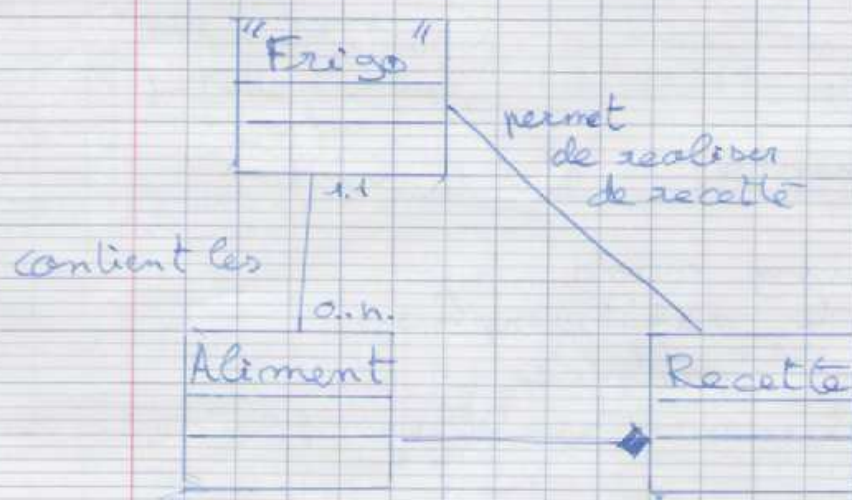 "Frigo"
permet
de realiser
de recette
1.1
contient les
0..n.
Aliment
Recette